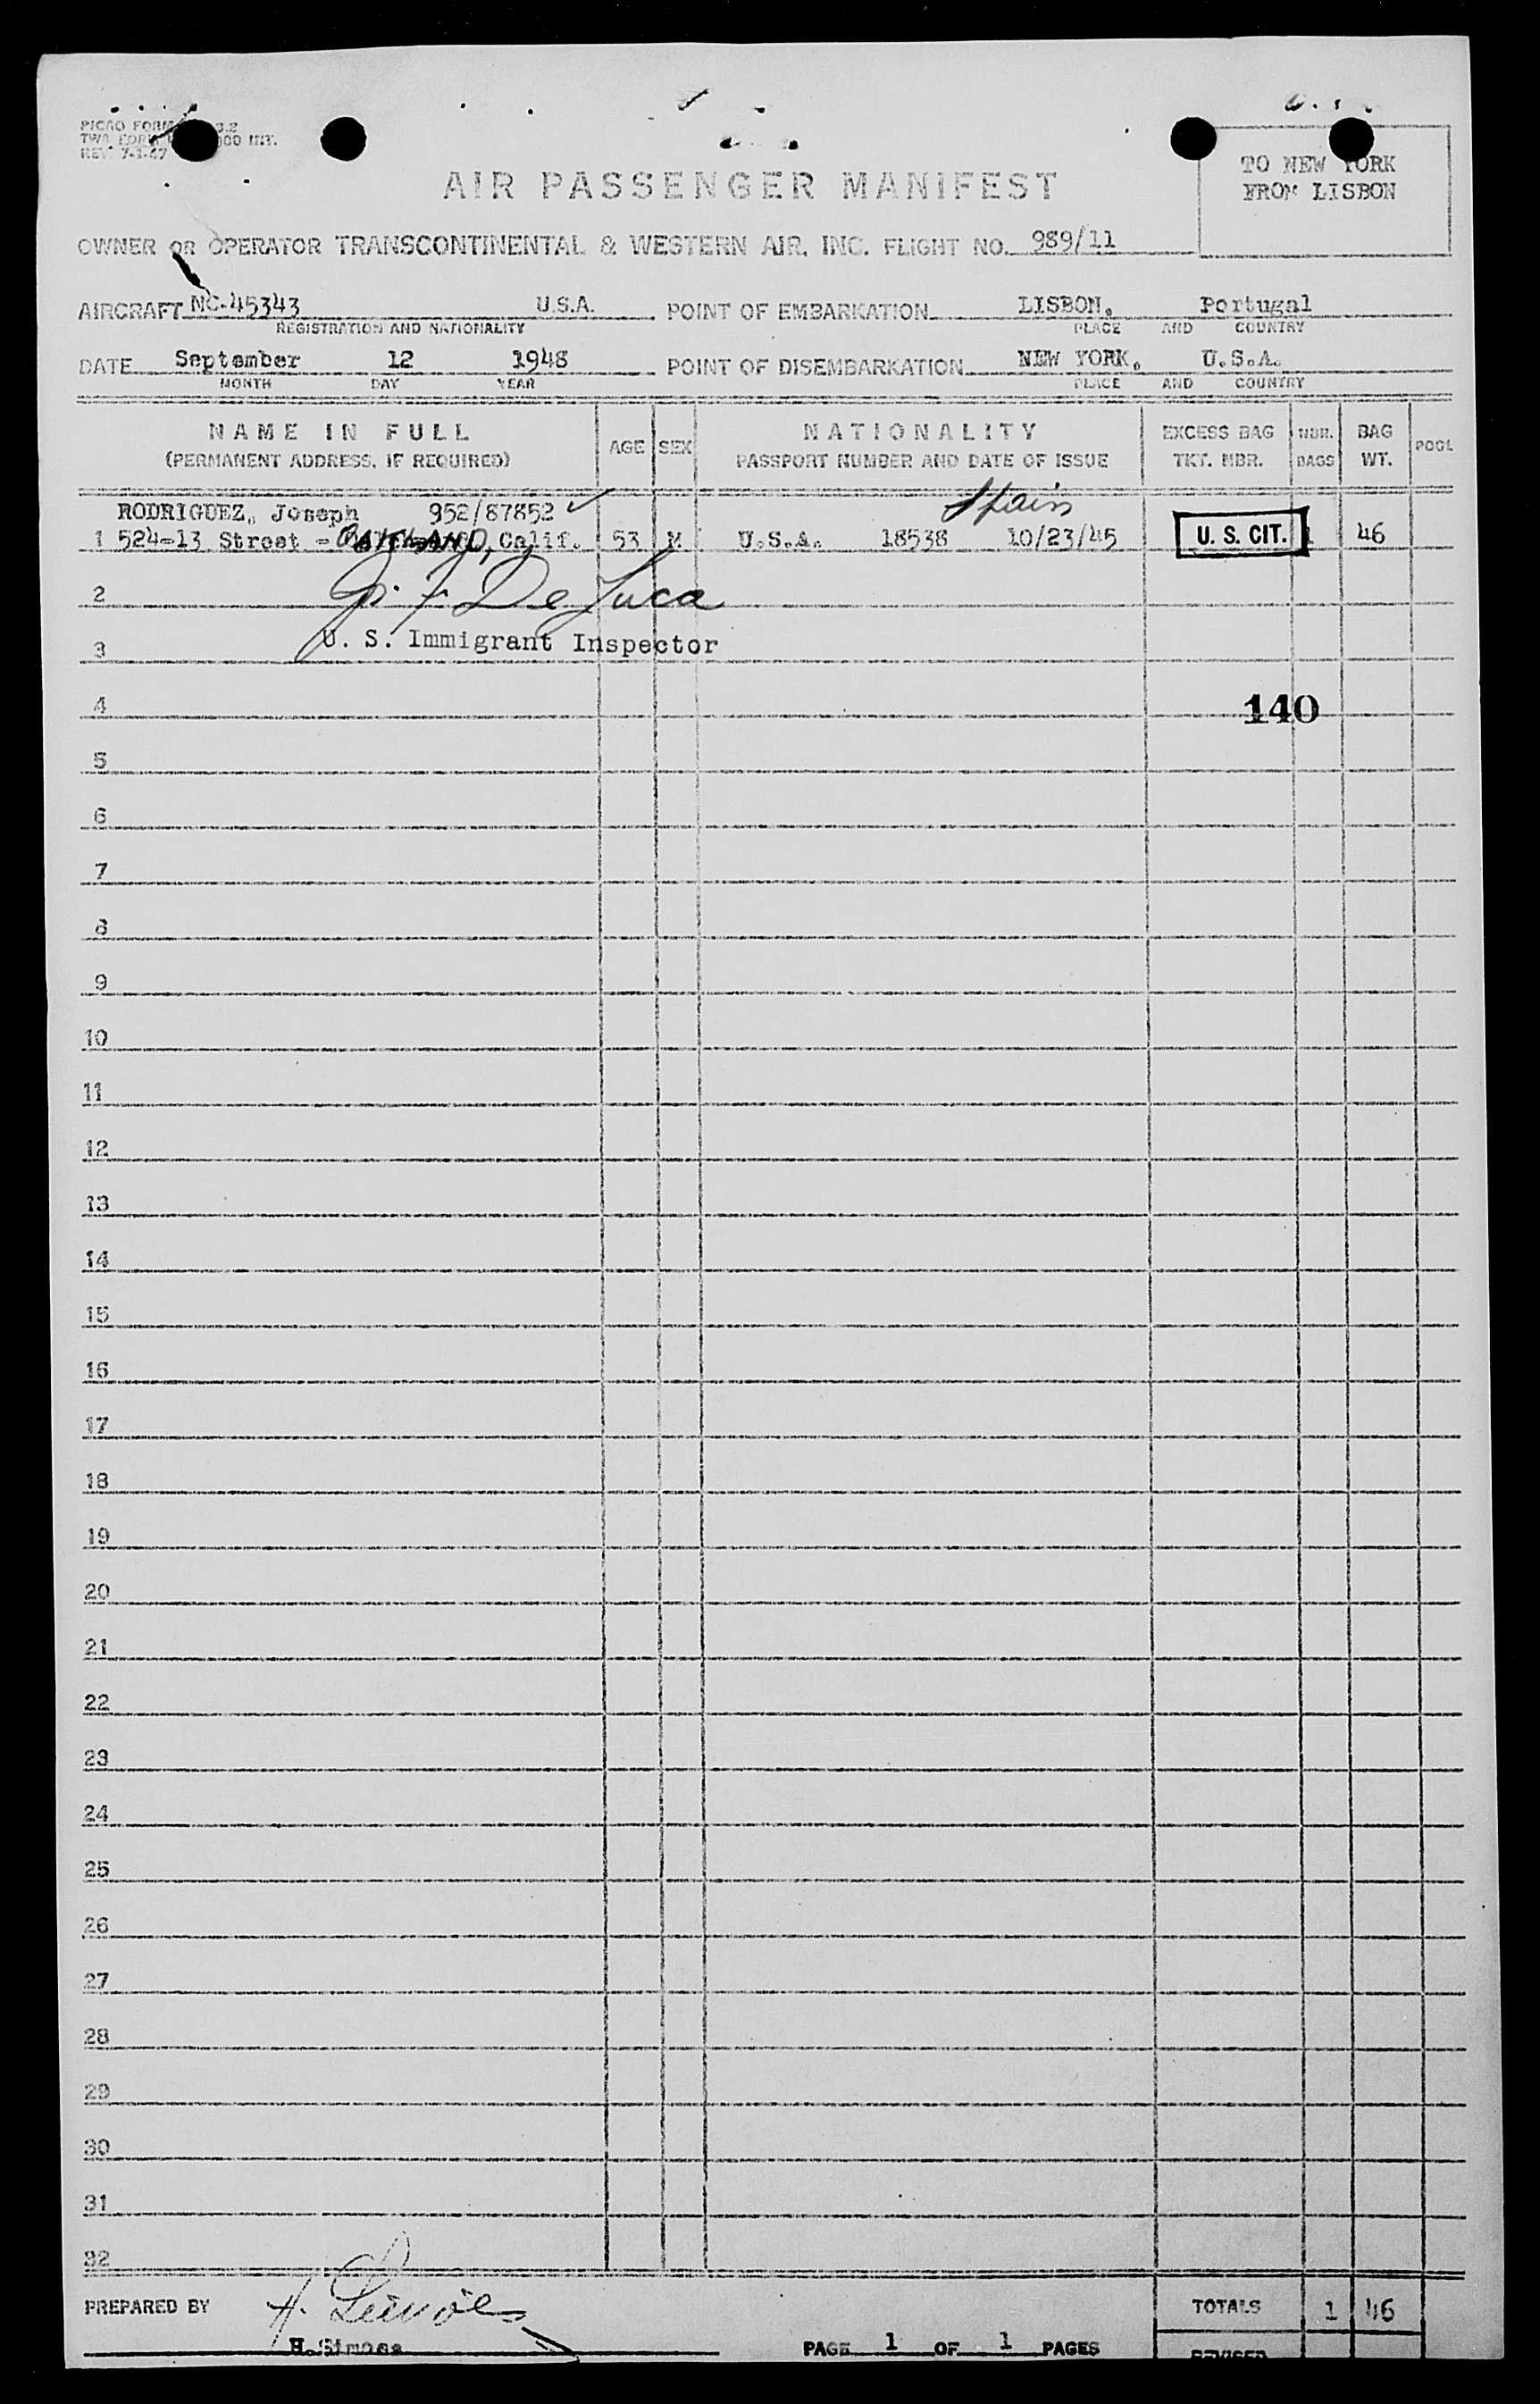 PICAO FORM 3.2
TWA FORM 000 INT.
REV. 7-1-47
TO NEW YORK
FROM LISBON
AIR PASSENGER MANIFEST
OWNER OR OPERATOR TRANSCONTINENTAL & WESTERN AIR, INC. FLIGHT NO. 989/11
AIRCRAFT NC-45343 U.S.A. POINT OF EMBARKATION LISBON, Portugal
REGISTRATION AND NATIONALITY PLACE AND COUNTRY
DATE September 12 1948 POINT OF DISEMBARKATION NEW YORK, U.S.A.
MONTH DAY YEAR PLACE AND COUNTRY
NAME IN FULL AGE SEX NATIONALITY EXCESS BAG NBR. BAG POOL
(PERMANENT ADDRESS, IF REQUIRED) PASSPORT NUMBER AND DATE OF ISSUE TKT. NBR. BAGS WT.
RODRIGUEZ, Joseph 952/87852 ✓ Spain
1 524-13 Street - OAKLAND, Calif. 53 M U.S.A. 18538 10/23/45 U. S. CIT. 1 46
2 De Luca
3 U. S. Immigrant Inspector
4 140
5
6
7
8
9
10
11
12
13
14
15
16
17
18
19
20
21
22
23
24
25
26
27
28
29
30
31
32
PREPARED BY TOTALS 1 46
H. Simoes PAGE 1 OF 1 PAGES REVISED